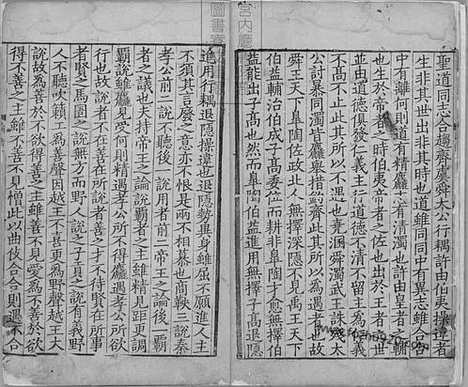 聖道同志合趨齊虞舜太公行耦許由伯夷操違者
生非其世出非其時也道雖同同中有異志雖合合
中有離何則道有精麤志有清濁也許由皇者之輔
也生於帝者之時伯夷帝者之佐也出於王者之世
並由道德俱發仁義主行道德不清不留主為仁義
不高不止此其所以不遇也堯溷舜濁武王誅殘太
公討暴同濁皆麤舉措鈞齊此其所以為遇者也故
舜王天下皋陶佐政北人無擇深隱不見禹王天下
伯益輔治伯成子高委位而耕非皋陶才愈無擇伯
益能出子高也然而皋陶伯益進用無擇子高退隱
進用行耦退隱操違也退隱勢異身雖屈不願進人主
不須其言廢之意亦不恨是兩不相慕也商鞅三說秦
孝公前二說不聽後一說用者前二帝王之論後一霸
者之議也夫持帝王之論說霸者之主雖精見距更調
霸說雖麤見受何則精遇孝公所不得麤遇孝公所欲
行也故說者不在善在所說者善之才不待賢在所事
者賢之馬圄之說無方而野人說之子貢之說有義野
人不聽吹籟工為善聲因越王不喜更為野聲越王大
說故為善於不欲得善之主雖善不見愛為不善於欲
得不善之主雖不善不見憎此以曲伎合合則遇不合